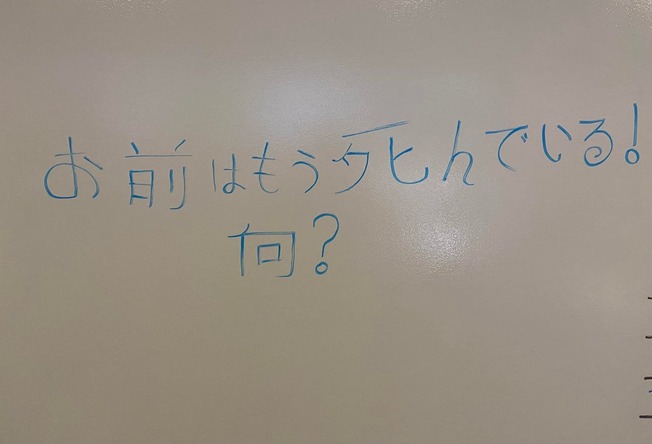 お前はもう死んでいる!
何?